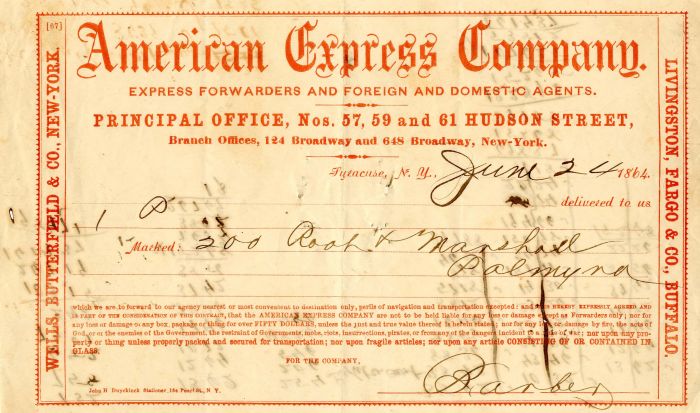 [67]
American Express Company.
EXPRESS FORWARDERS AND FOREIGN AND DOMESTIC AGENTS.
PRINCIPAL OFFICE, Nos. 57, 59 and 61 HUDSON STREET,
Branch Offices, 124 Broadway and 648 Broadway, New-York.
Syracuse, N. Y., June 24 1864.
delivered to us
1 P
Marked: 200 Root & Marshall
Palmyra
which we are to forward to our agency nearest or most convenient to destination only, perils of navigation and transportation excepted: and IT IS HEREBY EXPRESSLY AGREED AND
IS PART OF THE CONSIDERATION OF THIS CONTRACT, that the AMERICAN EXPRESS COMPANY are not to be held liable for any loss or damage except as Forwarders only; nor for
any loss or damage of any box, package or thing for over FIFTY DOLLARS, unless the just and true value thereof is herein stated; nor for any loss or damage by fire, the acts of
God, or of the enemies of the Government, the restraint of Governments, mobs, riots, insurrections, pirates, or from any of the dangers incident to a time of war; nor upon any pro-
perty or thing unless properly packed and secured for transportation; nor upon fragile articles; nor upon any article CONSISTING OF OR CONTAINED IN
GLASS.
FOR THE COMPANY,
Barber
John H Duyckinck Stationer, 164 Pearl St., N. Y.
WELLS, BUTTERFIELD & CO., NEW-YORK.
LIVINGSTON, FARGO & CO., BUFFALO.